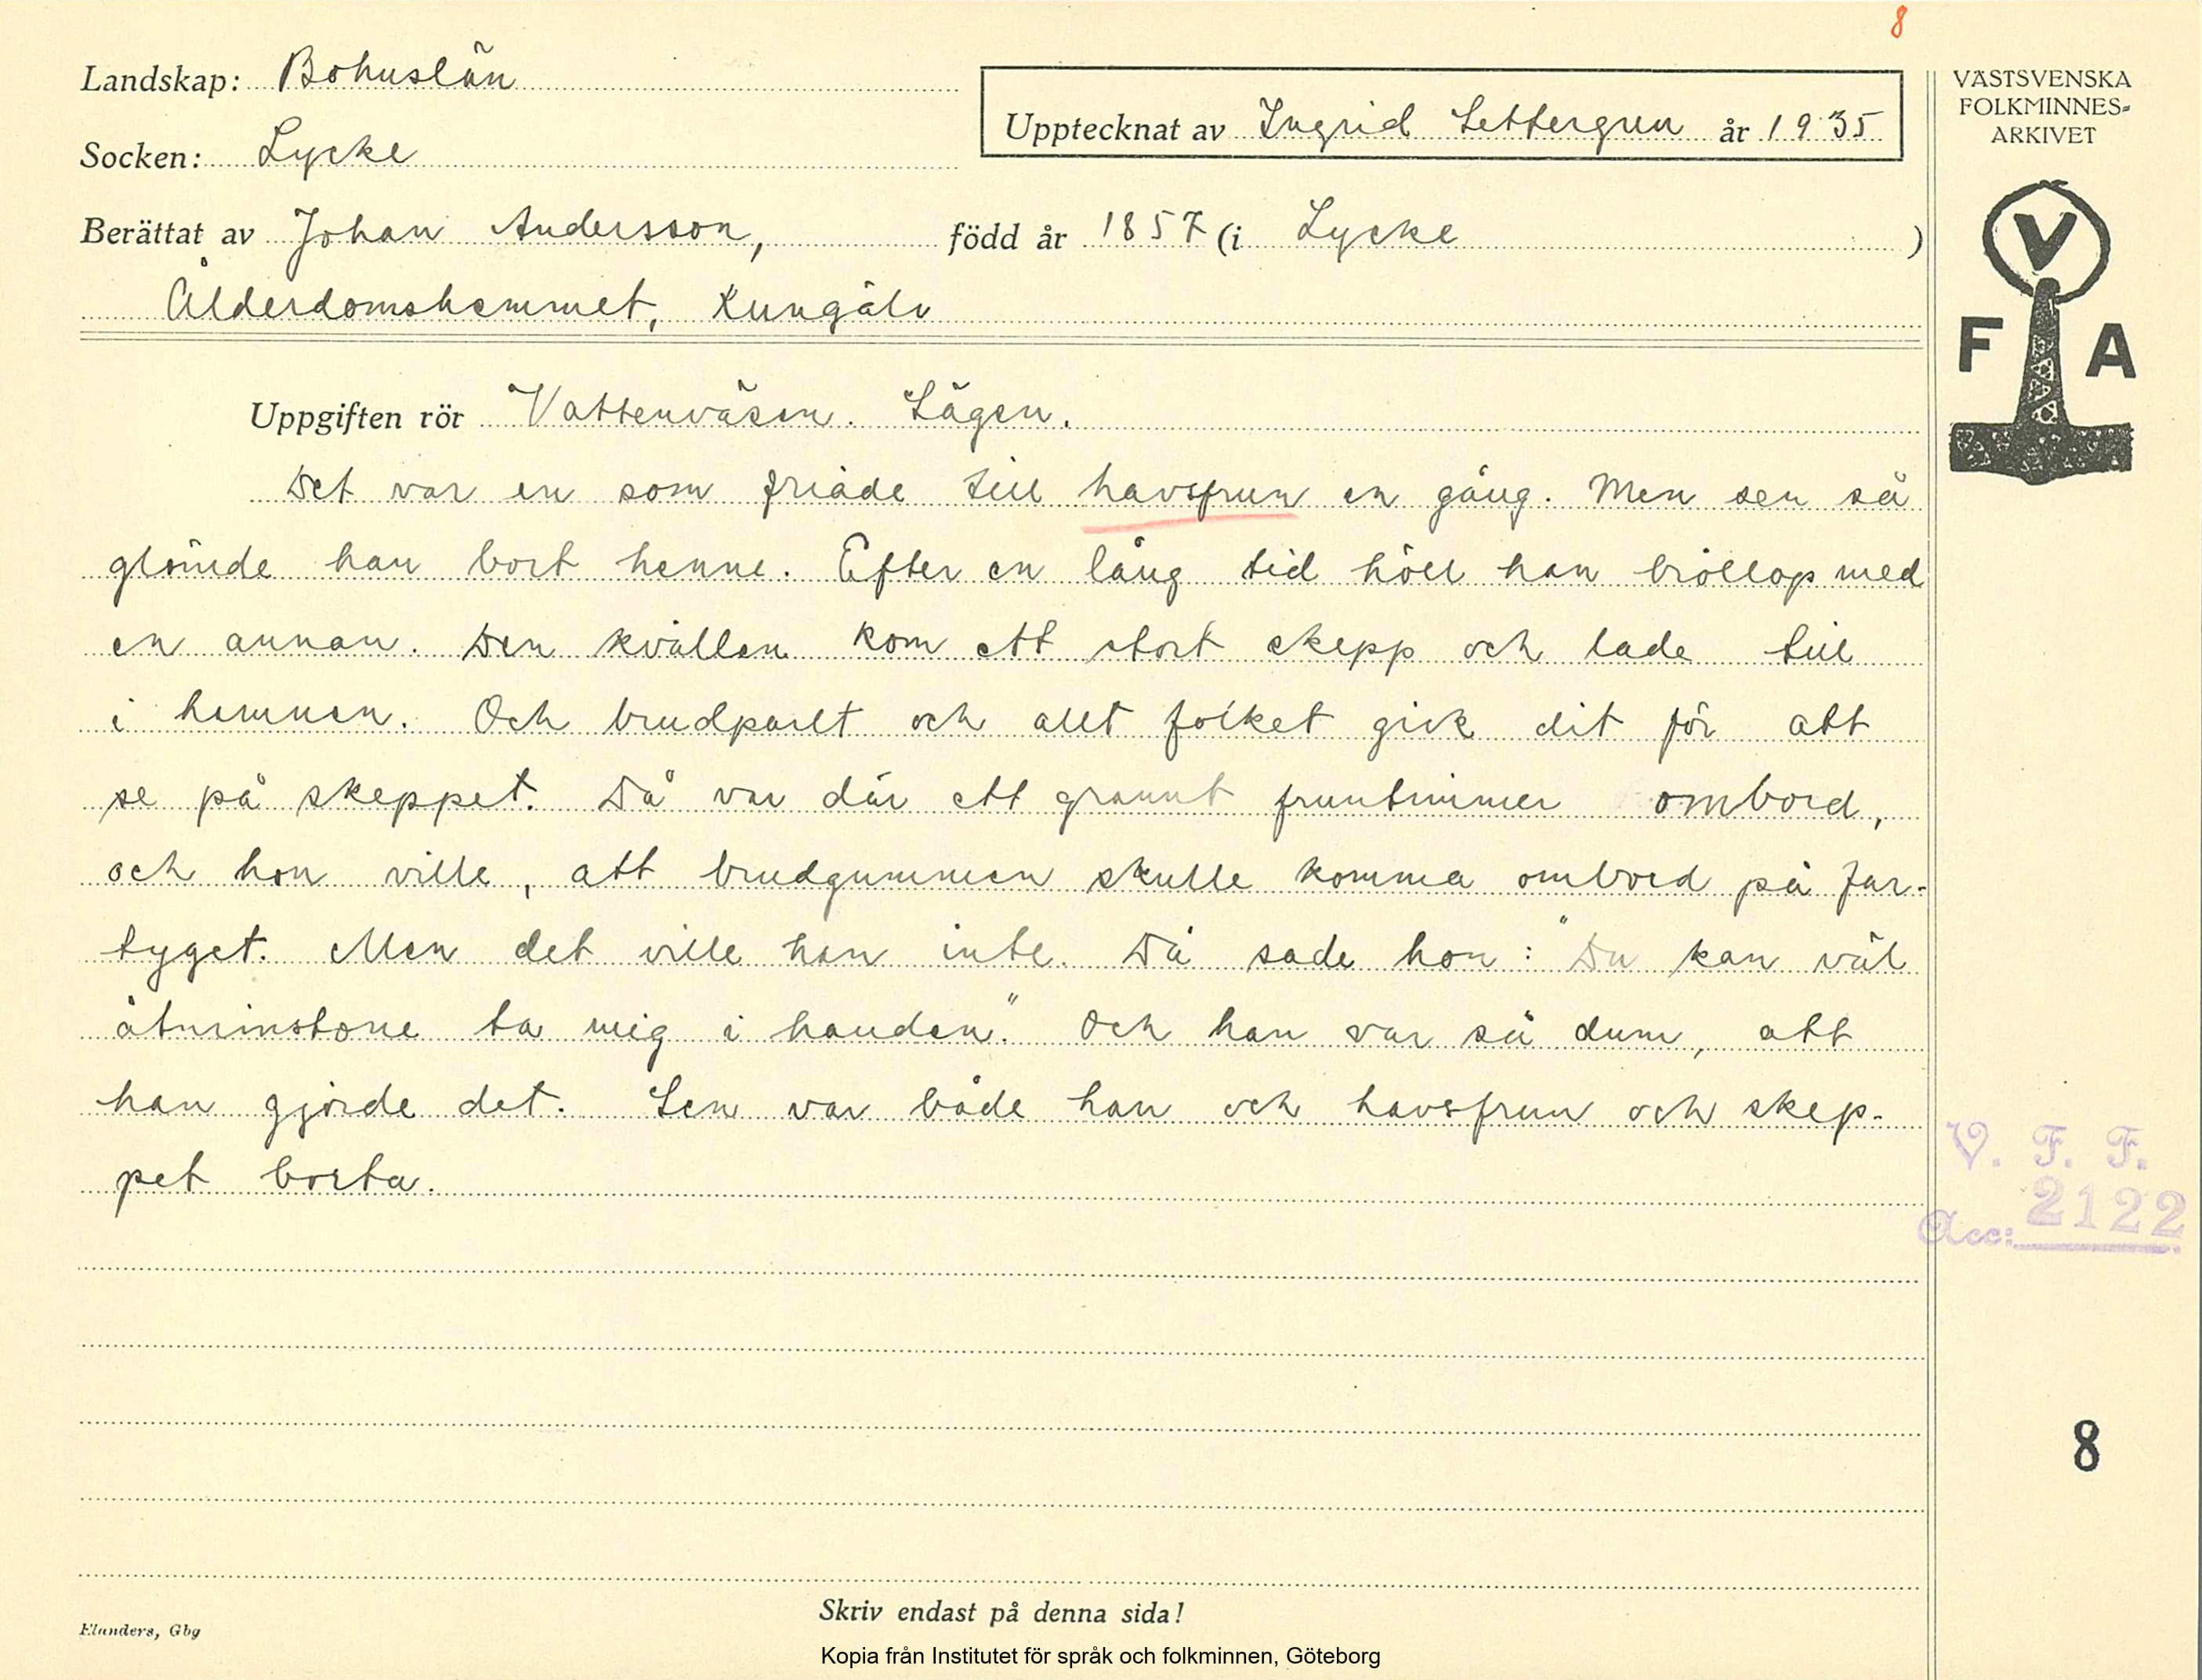 8
Landskap: Bohuslän
Socken: Lycke
Upptecknat av Ingrid Settergren år 1935
Berättat av Johan Andersson, född år 1857 (i Lycke )
Ålderdomshemmet, Kungälv
VÄSTSVENSKA
FOLKMINNES-
ARKIVET
V
F A
Uppgiften rör Vattenväsen. Sägen.
Det var en som friade till havsfrun en gång. Men sen så
glömde han bort henne. Efter en lång tid höll han bröllop med
en annan. Den kvällen kom ett stort skepp och lade till
i hamnen. Och brudparet och allt folket gick dit för att
se på skeppet. Då var där ett grannt fruntimmer ombord,
och hon ville, att brudgummen skulle komma ombord på far-
tyget. Men det ville han inte. Då sade hon: "Du kan väl
åtminstone ta mig i handen." Och han var så dum, att
han gjorde det. Sen var både han och havsfrun och skep-
pet borta.
V. F. F.
Acc: 2122
8
Skriv endast på denna sida!
Elanders, Gbg
Kopia från Institutet för språk och folkminnen, Göteborg